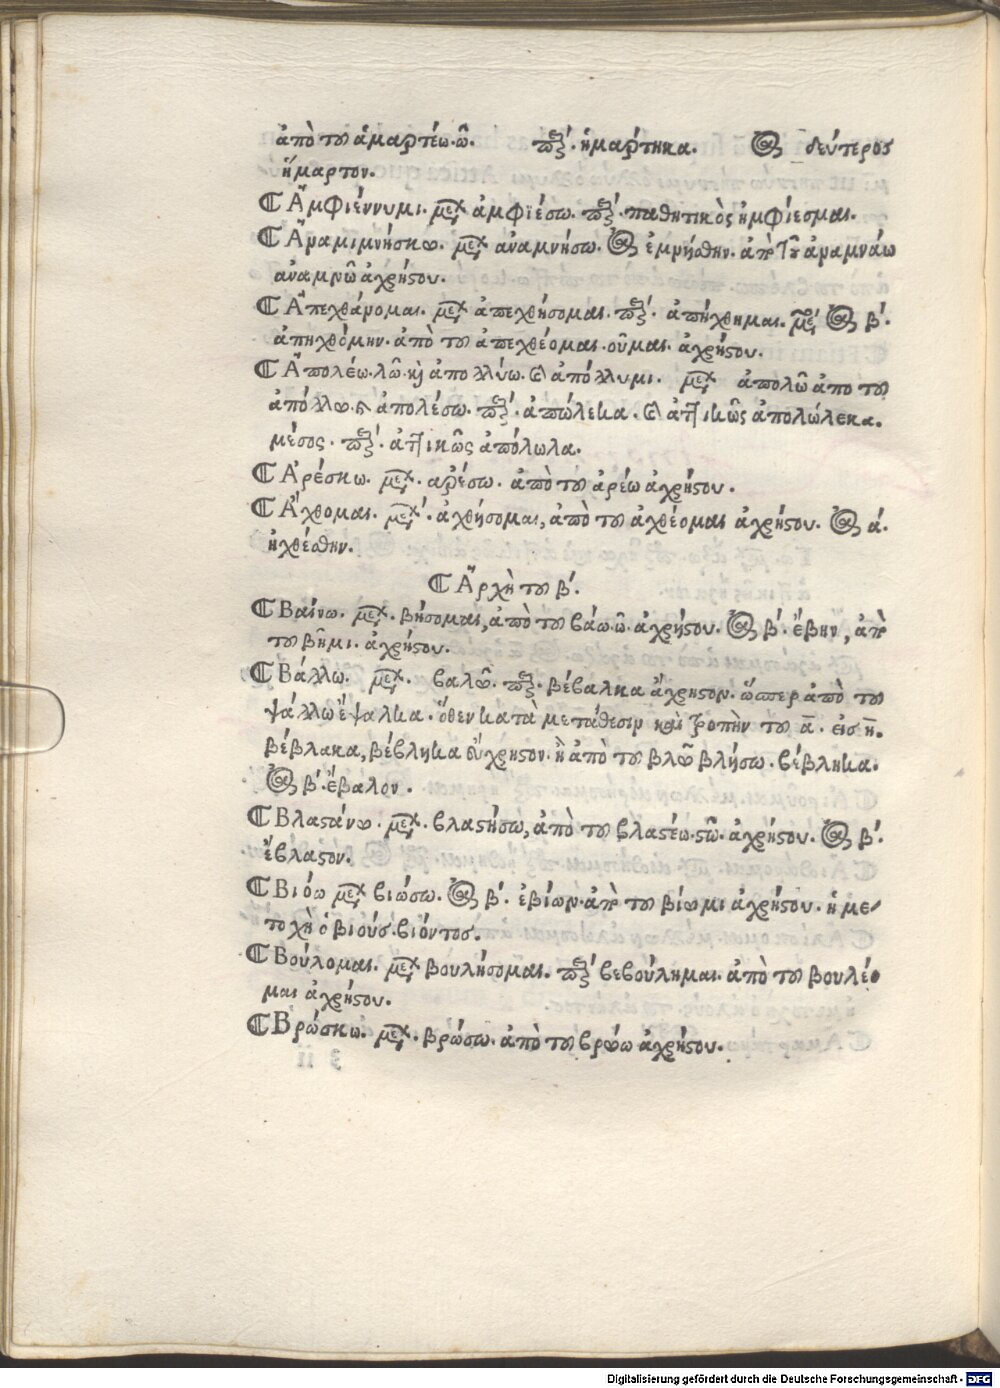 ἀπὸ τοῦ ἁμαρτέω.ῶ. ἡμάρτηκα. δεύτερος
ἥμαρτον.
Ἀμφιέννυμι. ἀμφιέσω. παθητικὸς ἠμφίεσμαι.
Ἀναμιμνήσκω. ἀναμνήσω. ἐμνήσθην. ἀπὸ τοῦ ἀναμνάω
ἀναμνῶ ἀχρήστου.
Ἀπεχθάνομαι. ἀπεχθήσομαι. ἀπήχθημαι. β΄.
ἀπηχθόμην. ἀπὸ τοῦ ἀπεχθέομαι.οῦμαι. ἀχρήστου.
Ἀπολέω.λῶ.καὶ ἀπολλύω. ἀπόλλυμι. ἀπολῶ ἀπὸ τοῦ
ἀπόλλω. ἀπολέσω. ἀπώλεκα. ἀττικῶς ἀπολώλεκα.
μέσος. ἀττικῶς ἀπόλωλα.
Ἀρέσκω. ἀρέσω. ἀπὸ τοῦ ἀρέω ἀχρήστου.
Ἄχθομαι. ἀχθήσομαι, ἀπὸ τοῦ ἀχθέομαι ἀχρήστου. ά.
ἠχθέσθην.
Ἀρχὴ τοῦ β΄.
Βαίνω. βήσομαι, ἀπὸ τοῦ βάω.ῶ. ἀχρήστου. β΄. ἔβην, ἀπὸ
τοῦ βῆμι. ἀχρήστου.
Βάλλω. βαλῶ. βέβαλκα ἄχρηστον. ὥσπερ ἀπὸ τοῦ
ψάλλω ἔψαλκα. ὅθεν κατὰ μετάθεσιν καὶ τροπὴν τοῦ ᾱ. εἰς η̄.
βέβλακα, βέβληκα εὔχρηστον. ἢ ἀπὸ τοῦ βλῶ βλήσω. βέβληκα.
β΄. ἔβαλον.
Βλαστάνω. βλαστήσω, ἀπὸ τοῦ βλαστέω.στῶ. ἀχρήστου. β΄.
ἔβλαστον.
Βιόω βιώσω. β΄. ἐβίων. ἀπὸ τοῦ βίωμι ἀχρήστου. ἡ με-
τοχὴ ὁ βιούς.βιόντος.
Βούλομαι. βουλήσομαι. βεβούλημαι. ἀπὸ τοῦ βουλέο
μαι ἀχρήστου.
Βρώσκω. βρώσω. ἀπὸ τοῦ βρώω ἀχρήστου.
Digitalisierung gefördert durch die Deutsche Forschungsgemeinschaft - DFG